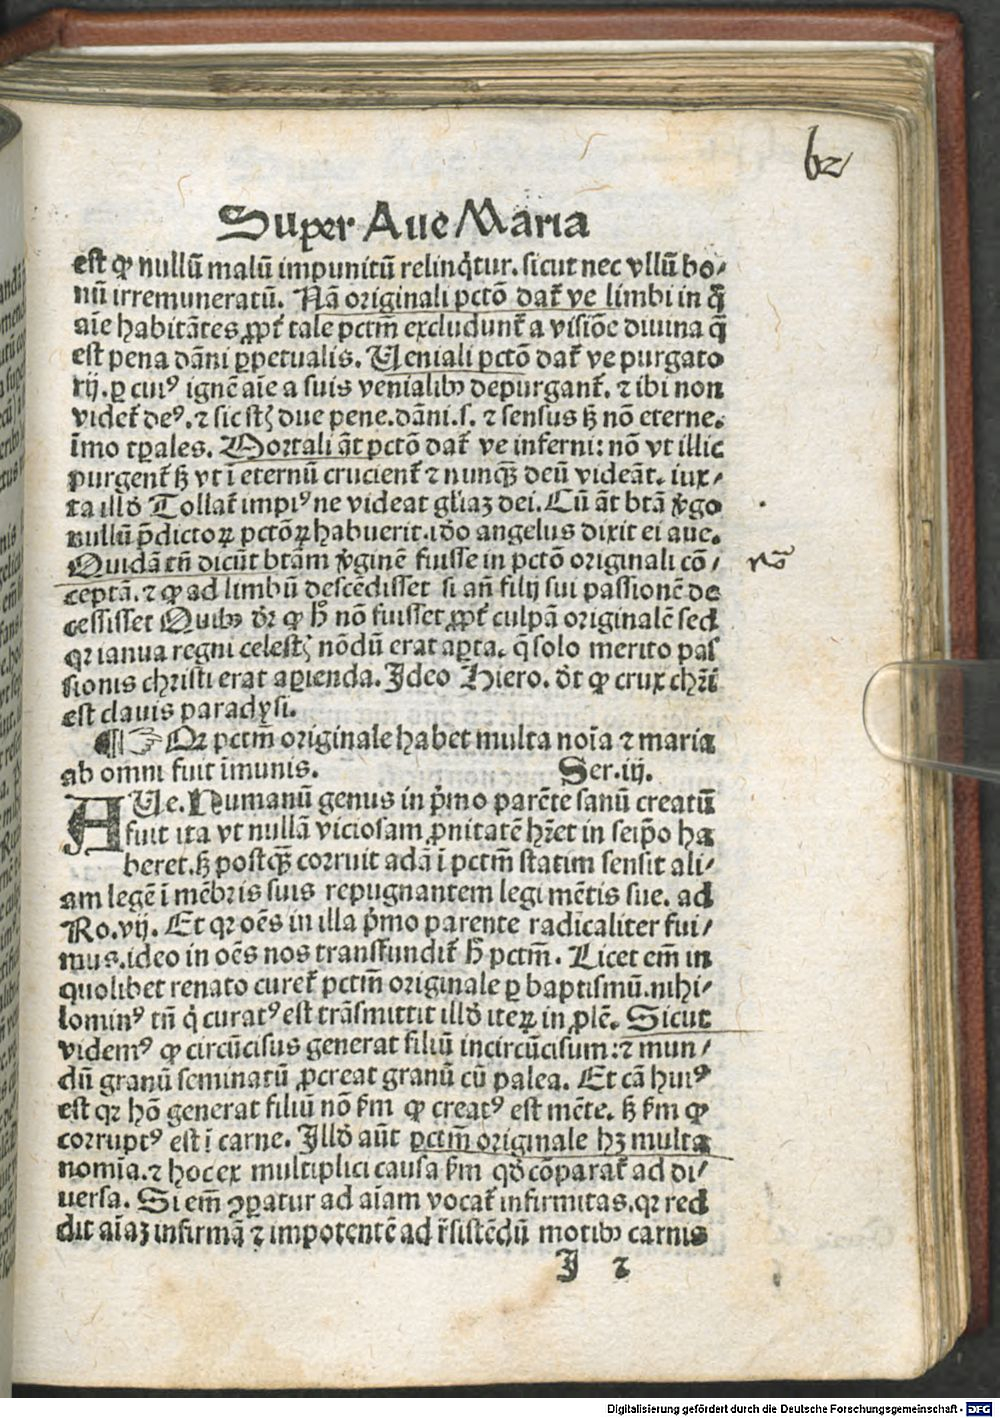 62
Super Aue Maria
est qꝫ nullū malū impunitū relinq̄tur. sicut nec vllū bo⸗
nū irremuneratū. Nā originali pctō dat᷑ ve limbi in q̄
aīe habitātes ꝓpt᷑ tale pctm̄ excludunt᷑ a visiōe diuina q̄
est pena dāni ꝑpetualis. Ueniali pctō dat᷑ ve purgato
rij. ꝑ cuiꝰ ignē aīe a suis venialibꝫ depurgant᷑. ⁊ ibi non
videt᷑ deꝰ. ⁊ sic st̄ due pene. dāni .s. ⁊ sensus sꝫ nō eterne.
īmo tꝑales. Mortali āt pctō dat᷑ ve inferni: nō vt illic
purgent᷑ sꝫ vt ī eternū crucient᷑ ⁊ nunqꝫ̄ deū videāt. iux⸗
ta illđ Tollat᷑ impiꝰ ne videat gl̄iaꝫ dei. Cū āt btā v̄go
nullū p̄dictoꝝ pctōꝝ habuerit. iđo angelus dixit ei aue.
Quidā tn̄ dicūt btām v̄ginē fuisse in pctō originali cō⸗
ceptā. ⁊ qꝫ ad limbū descēdisset si an̄ filij sui passionē de
cessisset Quibꝫ dr̄ qꝫ h̄ nō fuisset ꝓpt᷑ culpā originalē sed
qꝛ ianua regni celest̄ nōdū erat aꝑta. q̄ solo merito pas
sionis christi erat aꝑienda. Ideo Hiero. dt̄ qꝫ crux chr̄i
est clauis paradysi.
¶ ☞ Qꝛ pctm̄ originale habet multa noīa ⁊ maria
ab omni fuit īmunis. Ser. iij.
AUe. Humanū genus in p̄mo parēte sanū creatū
fuit ita vt nullā viciosam ꝓnitatē hr̄et in seip̄o ha
beret. sꝫ postqꝫ̄ corruit adā ī pctm̄ statim sensit ali⸗
am legē ī mēbris suis repugnantem legi mētis sue. ad
Ro. vij. Et qꝛ oēs in illa p̄mo parente radicaliter fui⸗
mus. ideo in oēs nos transfundit᷑ h̄ pctm̄. Licet em̄ in
quolibet renato curet᷑ pctm̄ originale ꝑ baptismū. nihi⸗
lominꝰ tn̄ q̄ curatꝰ est trāsmittit illđ iteꝝ in ꝓlē. Sicut
videmꝰ qꝫ circūcisus generat filiū incircūcisum: ⁊ mun⸗
dū granū seminatū ꝓcreat granū cū palea. Et cā huiꝰ
est qꝛ hō generat filiū nō s̄m qꝫ creatꝰ est mēte. sꝫ s̄m qꝫ
corruptꝰ est ī carne. Illđ aūt pctm̄ originale hꝫ multa
nomīa. ⁊ hoc ex multiplici causa s̄m qđ cōparat᷑ ad di⸗
uersa. Si em̄ ꝯꝑatur ad aīam vocat᷑ infirmitas. qꝛ red
dit aīaꝫ infirmā ⁊ impotentē ad r̄sistēdū motibꝫ carnis
I 2
Digitalisierung gefördert durch die Deutsche Forschungsgemeinschaft - DFG